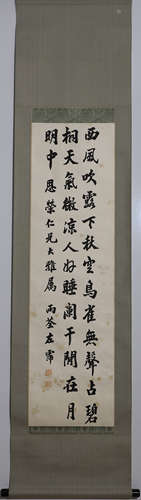 西風吹露下秋空鳥雀無聲占碧
梧天氣微涼人好睡闌干閒在月
明中 恩榮仁兄大雅屬 雨荃左霈